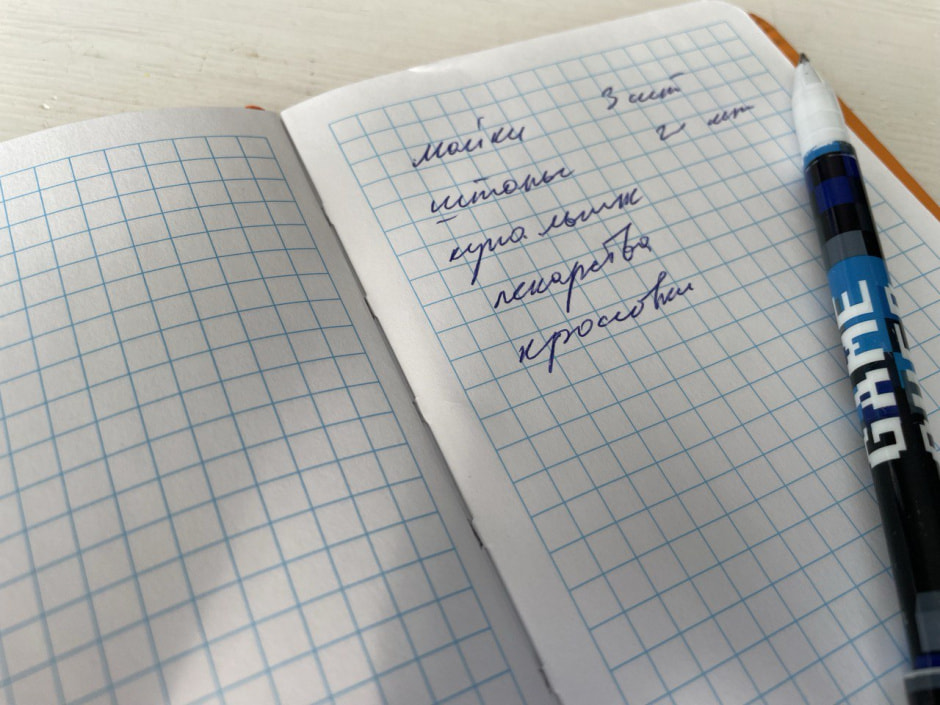 майки 3 шт
штаны 2 шт
купальник
лекарства
кроссовки
GAME